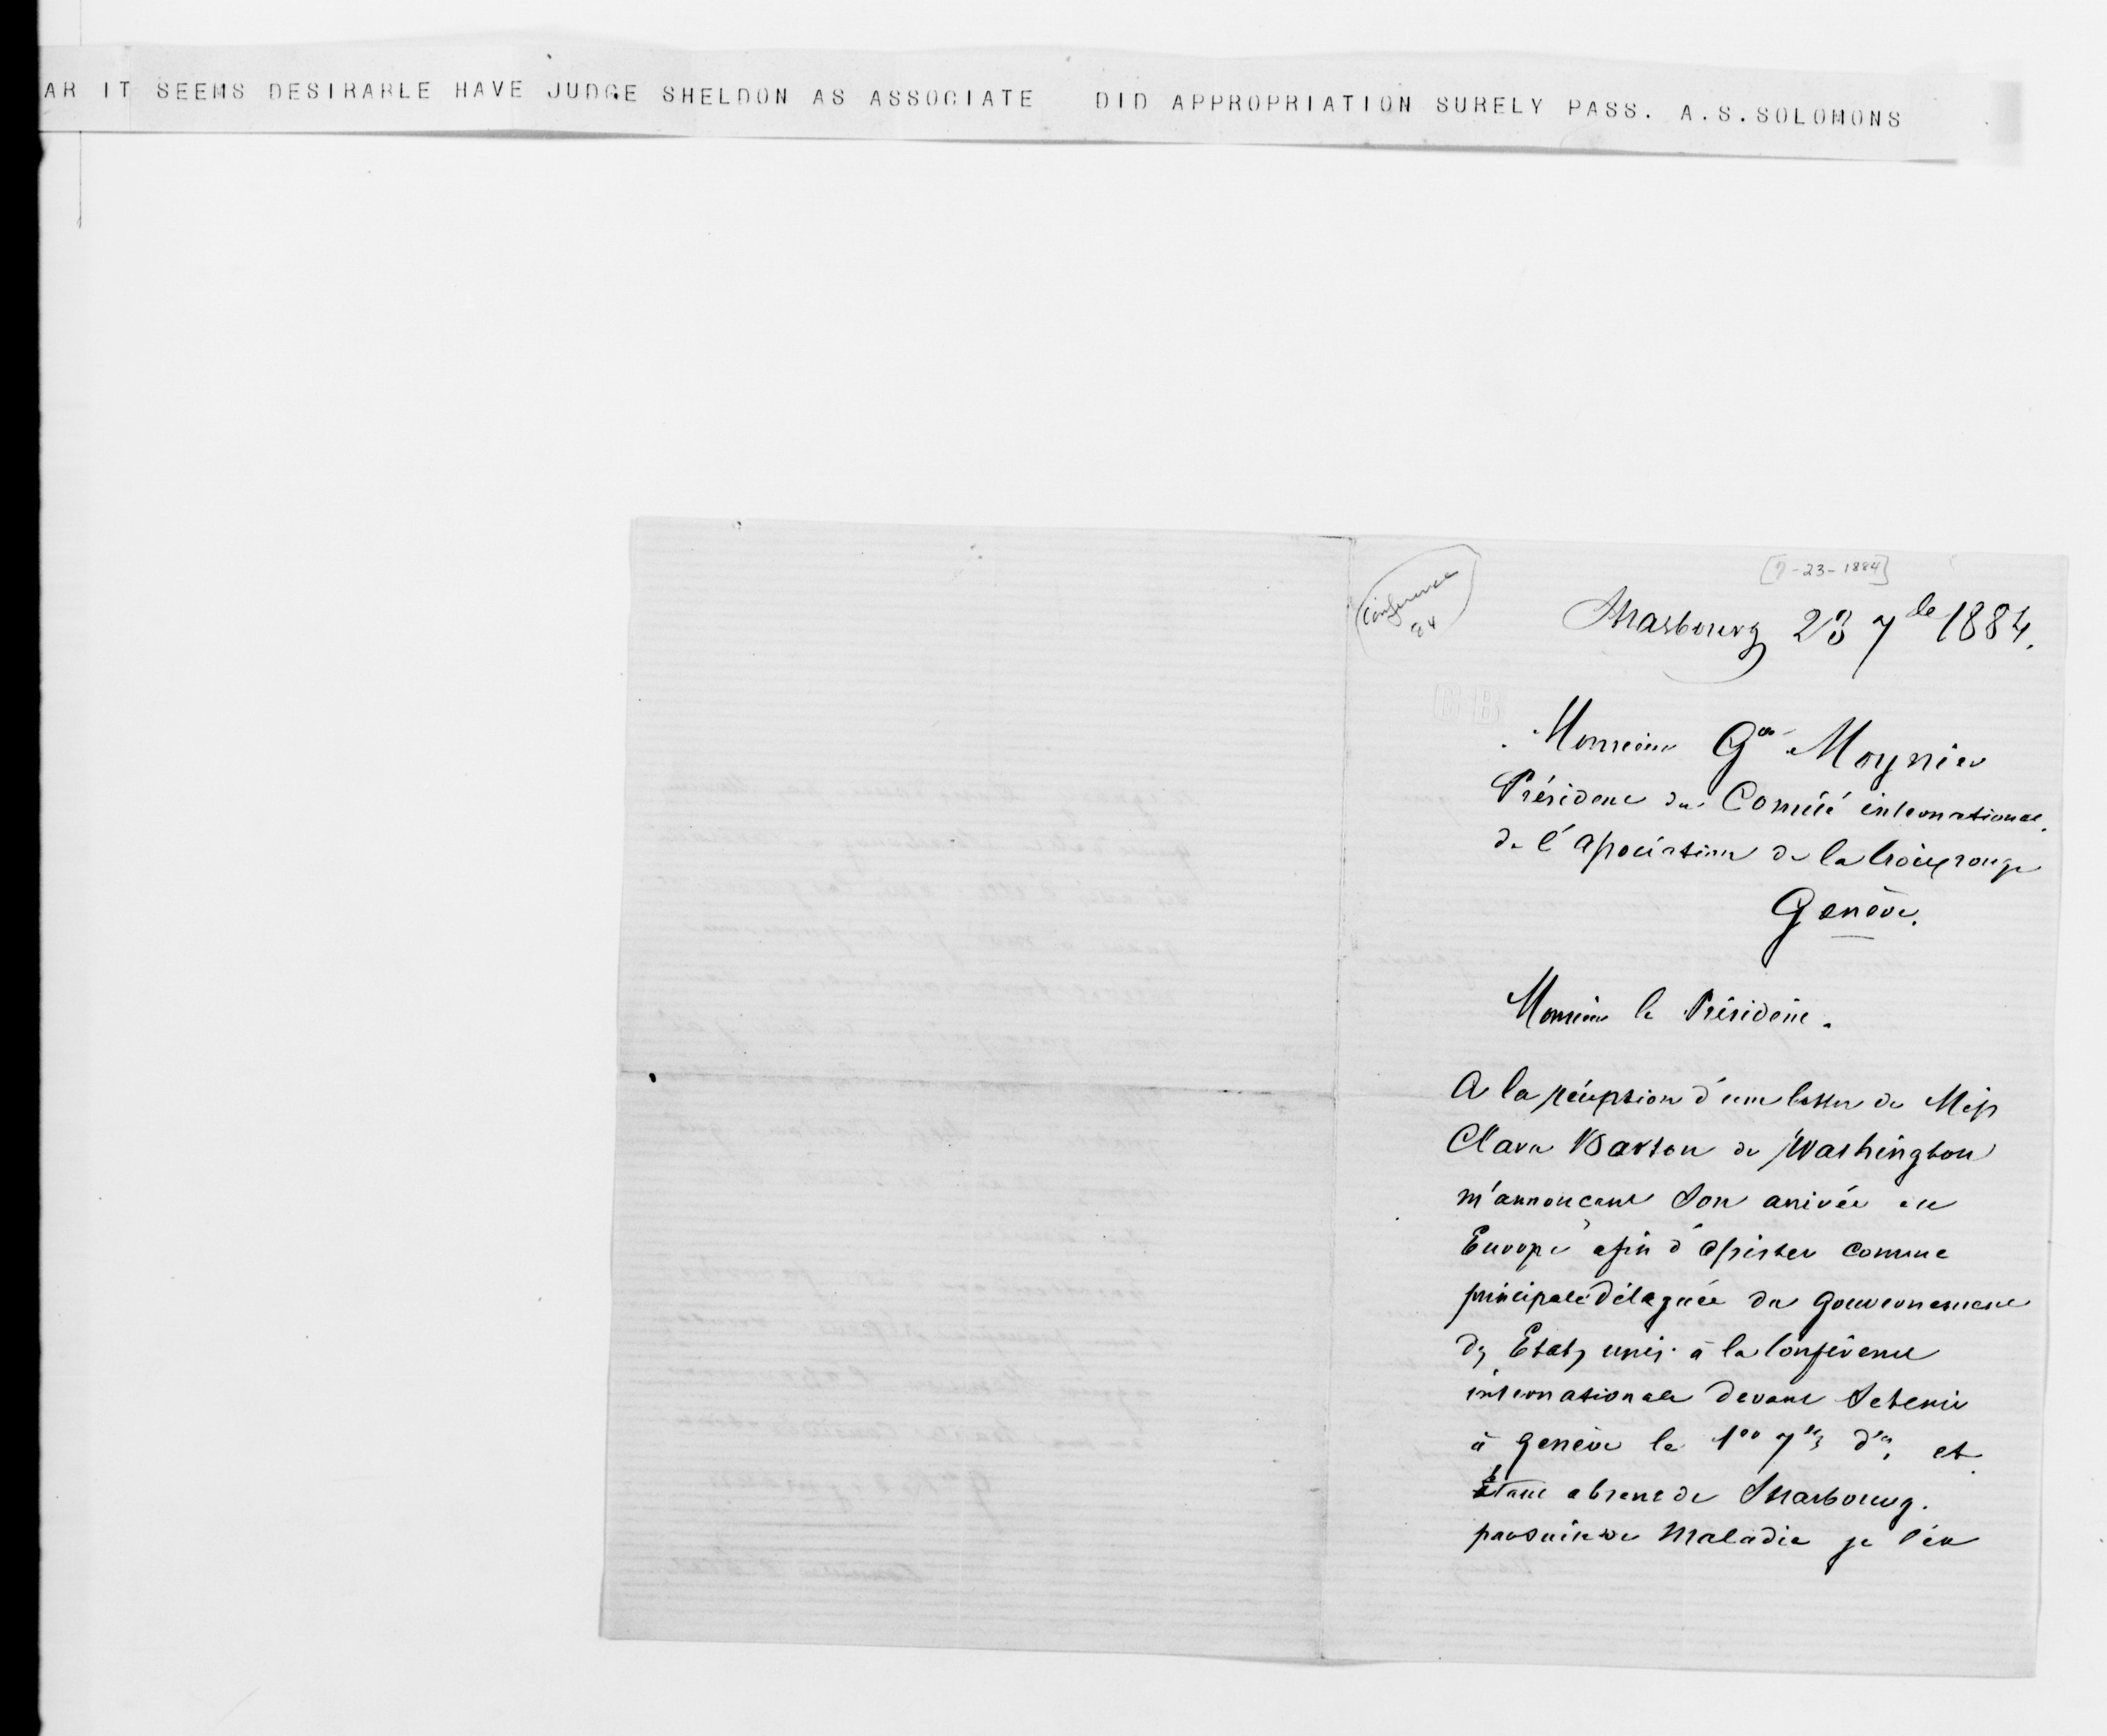 AR IT SEEMS DESIRABLE HAVE JUDGE SHELDON AS ASSOCIATE DID APPROPRIATION SURELY PASS. A.S.SOLOMONS
[7-23-1884]
Conference
84
Strasbourg 23 7de 1884.
CB
Monsieur Gve Moynier
Président du Comité international
de l'association de la Croix rouge
Genève.
Monsieur le Président.
A la réception d'une lettre de Miss
Clara Barton de Washington
m'annoncant son arivée en
Europe afin d'assister comme
principale déléguée du Gouvernement
des Etats unis à la Conférence
internationale devant se tenir
à Genève le 1er 7bre et
étant absent de Strasbourg.
par suite de Maladie je l'en